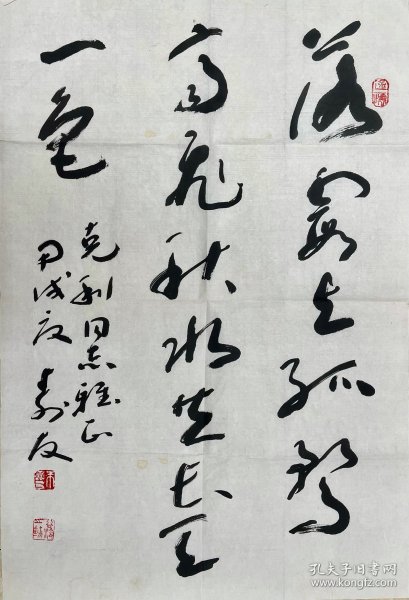 落霞与孤鹜
齐飞秋水共长天
一色
克利同志雅正
甲戌夏
孔夫子旧书网
www.kongfz.com